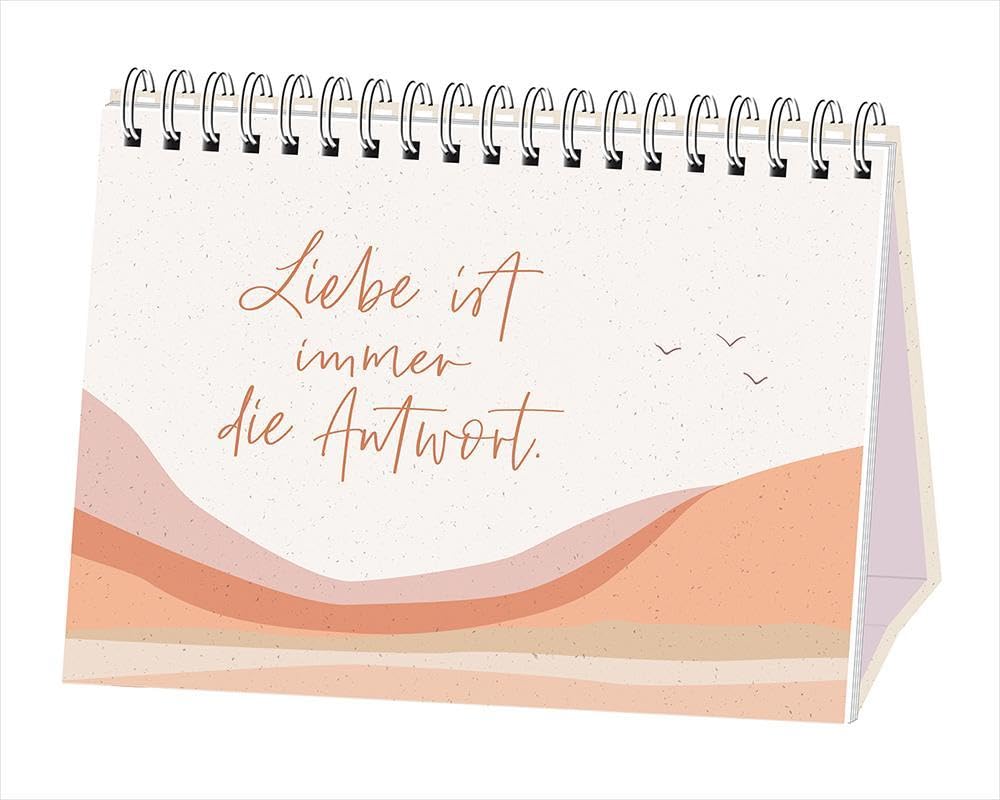 Liebe ist
immer
die Antwort.